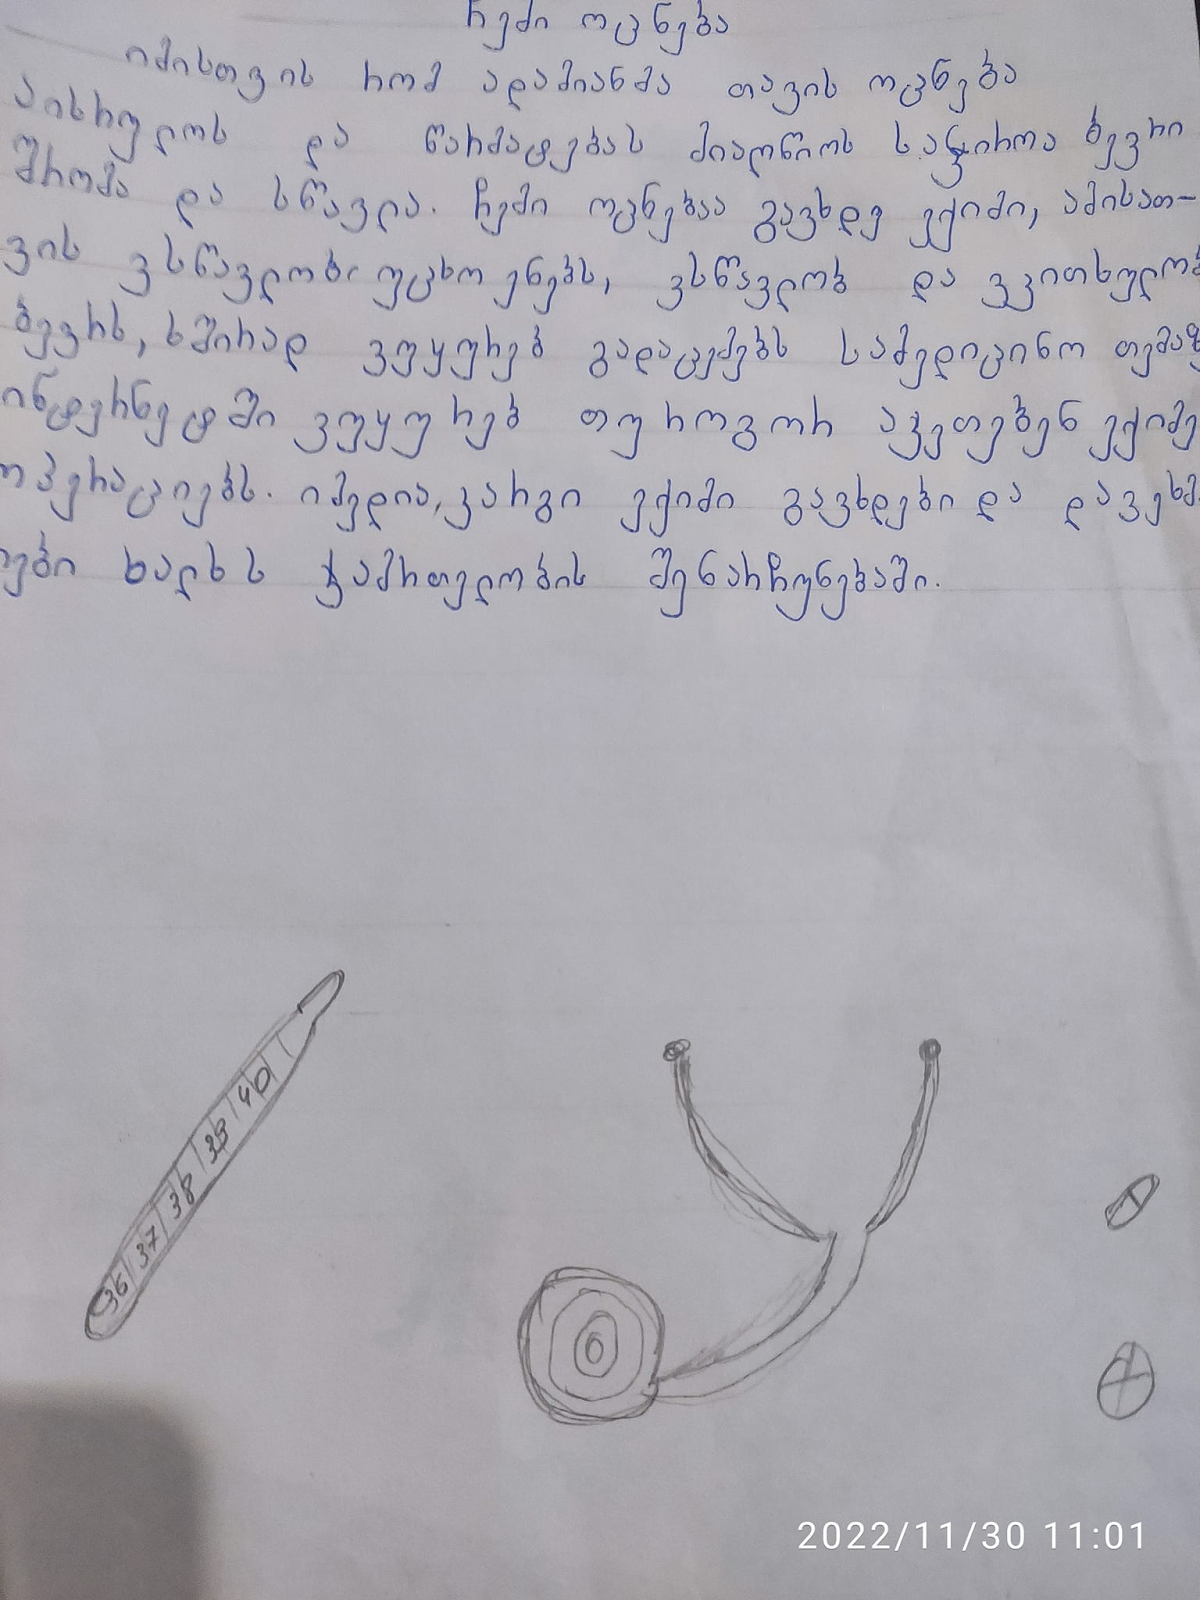 ჩემი ოცნება
იმისთვის რომ ადამიანმა თავის ოცნება
აისრულოს და წარმატებას მიაღწიოს საჭიროა ბევრი
შრომა და სწავლა. ჩემი ოცნებაა გავხდე ექიმი, ამისათ-
ვის ვსწავლობ უცხო ენებს, ვსწავლობ და ვკითხულობ
ბევრს, ხშირად ვუყურებ გადაცემებს სამედიცინო თემაზე
ინტერნეტში ვუყურებ თუ როგორ აკეთებენ ექიმე
ოპერაციებს. იმედია, კარგი ექიმი გავხდები და დავეხმ
ები ხალხს ჯამრთელობის შენარჩუნებაში.
36 37 38 39 40
2022/11/30 11:01